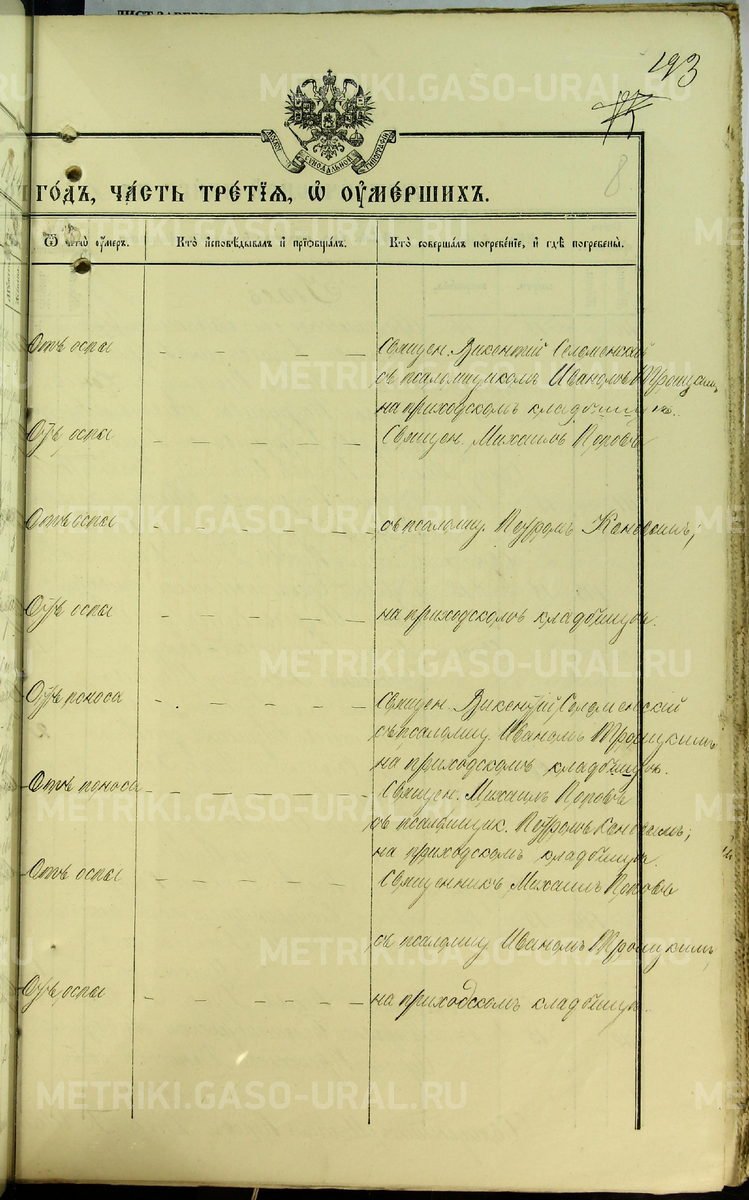 193
8
ГО́ДЪ, ЧА́СТЬ ТРЕ́ТЇѦ, Ѡ҆ ОУ҆МЕ́РШИХЪ.
Ѿ чегѡ̀ оу҆́меръ.
Кто̀ и҆сповѣ́дывалъ и҆ прїѡбща́лъ.
Кто̀ соверша́лъ погребе́нїе, и҆ гдѣ̀ погребены̀.
Отъ оспы
Священ. Викентий Селоменский
съ псаломщикомъ Иваномъ Троицким
на приходскомъ кладбищѣ.
Отъ оспы
Священ. Михаилъ Поповъ
Отъ оспы
съ псаломщ. Петромъ
Отъ оспы
на приходскомъ кладбищѣ.
Отъ поноса
Священ. Викентій Селоменский
съ псаломщ Иваномъ Троицкимъ
на приходскомъ кладбищѣ.
Отъ поноса
Священ. Михаилъ Поповъ
съ псаломщик. Петромъ
на приходскомъ кладбищѣ.
Отъ оспы
Священникъ Михаилъ Поповъ
съ псаломщ Иваномъ Троицкимъ
Отъ оспы
на приходскомъ кладбищѣ.
METRIKI.GASO-URAL.RU